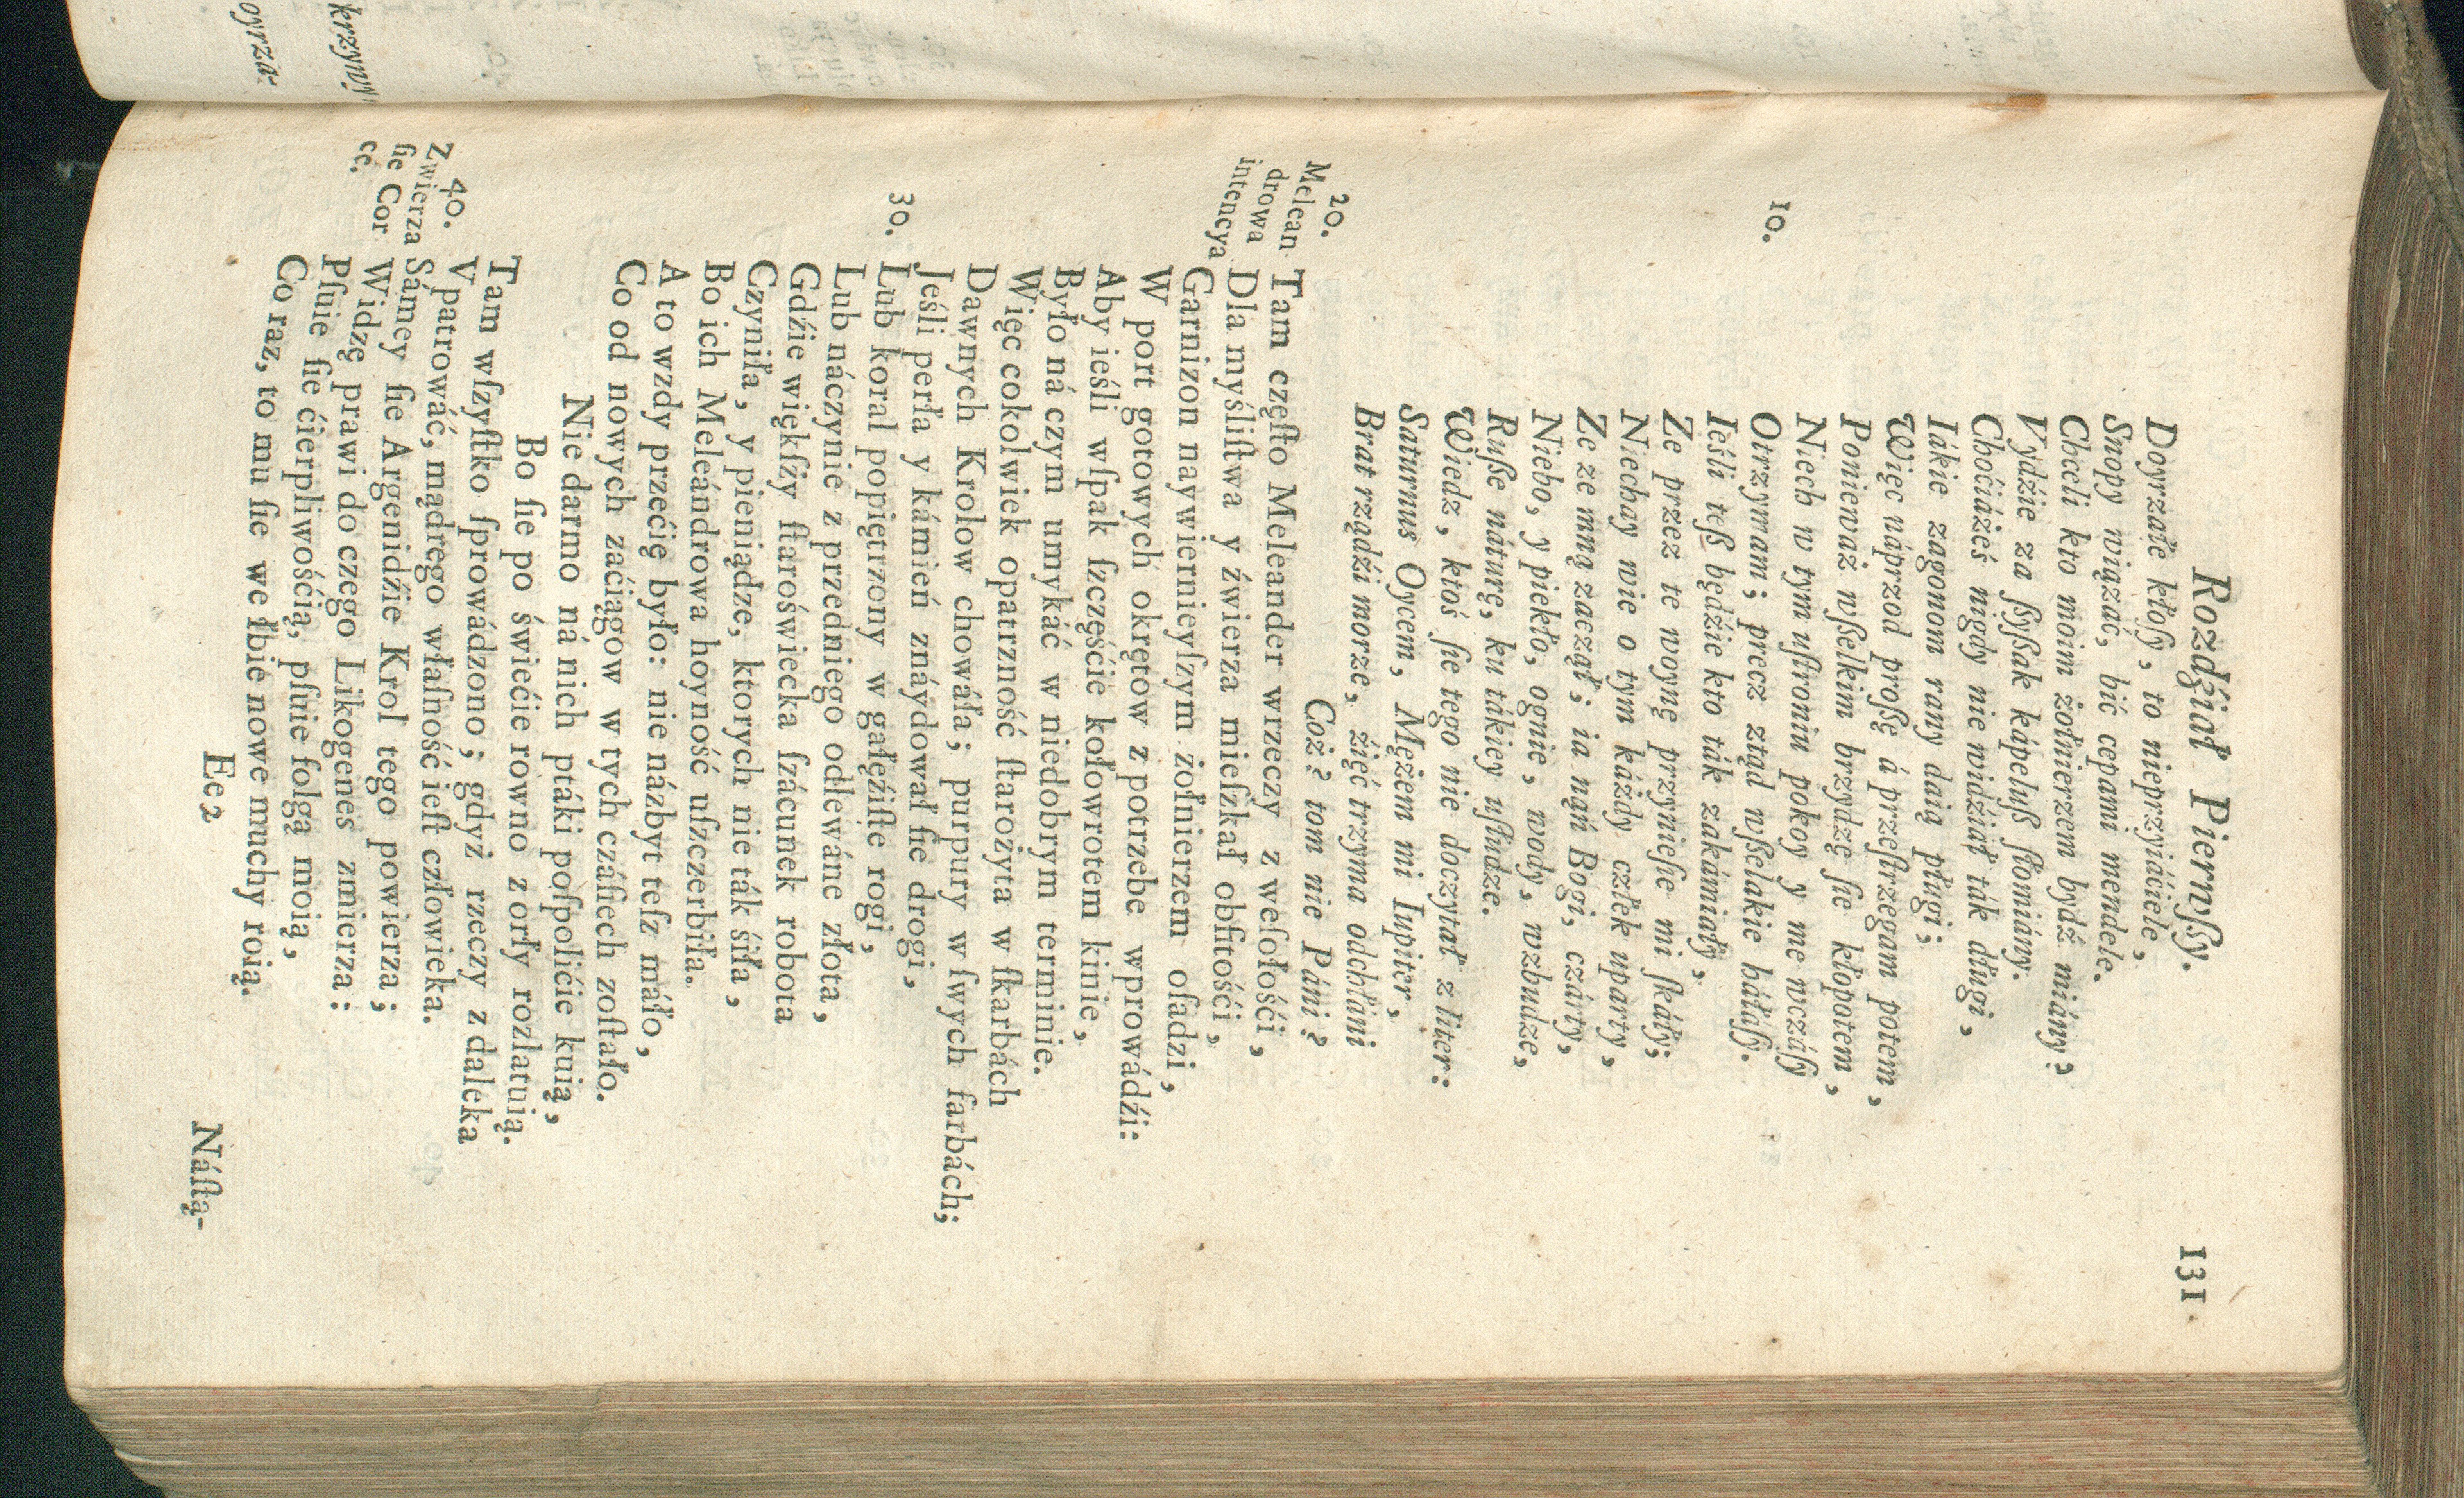 krzyw
oyrzá-
Rozdźiał Pierwſſy. 131
Doyrzałe kłoſy, to nieprzyiáćiele,
Snopy wiązáć, bić cepami mendele.
Chceli kto moim żołnierzem bydź miány;
Vydźie za ſſyſſak kápeluß ſłomiány.
Choćiáżeś nigdy nie widźiał ták długi,
Iákie zagonom rany daią pługi;
Więc náprzod proßę á przeſtrzegam potem,
Ponieważ wßelkim brzydzę ſie kłopotem,
Niech w tym uſtroniu pokoy y me wczáſſy
10. Otrzymam; precz ztąd wßelakie háłáſſy.
Ieśli teß będźie kto ták zakámiáły,
Ze przez te woynę przynieſie mi ſkáły;
Niechay wie o tym káżdy człek uparty,
Ze ze mną zaczął; ia nąń Bogi, czárty,
Niebo, y piekło, ognie, wody, wzbudze,
Ruße náturę, ku tákiey uſłudze.
Wiedz, ktoś ſie tego nie doczytał z liter:
Saturnus Oycem, Mężem mi Iupiter,
Brat rządźi morze, źięć trzyma odchłáni
20. Coż? tom nie Páni?
Melean
drowa
intencya
Tam częſto Meleander wrzeczy z weſołośći,
Dla myśliſtwa y źwierza mieſzkał obfitośći,
Garnizon naywiernieyſzym żołnierzem oſadzi,
W port gotowych okrętow z potrzebe wprowádźi:
Aby ieśli wſpak ſzczęśćie kołowrotem kinie,
Było ná czym umykáć w niedobrym terminie.
Więc cokolwiek opatrzność ſtarożyta w ſkarbách
Dawnych Krolow chowáła; purpury w ſwych farbách;
Jeśli perła y kámień znáydował ſie drogi,
30. Lub koral popiętrzony w gałęźiſte rogi,
Lub náczynie z przedniego odlewáne złota,
Gdźie więkſzy ſtaroświecka ſzácunek robota
Czyniła, y pieniądze, ktorych nie ták śiła,
Bo ich Meleándrowa hoyność uſzczerbiła.
A to wzdy przećię było: nie názbyt teſz máło,
Co od nowych zaćiągow w tych czáſiech zoſtało.
Nie darmo ná nich ptáki poſpolićie kuią,
Bo ſie po świećie rowno z orły rozlatuią.
Tam wſzyſtko ſprowádzono; gdyż rzeczy z daleka
40. V patrowáć, mądrego właſność ieſt człowieka.
Zwierza
ſie Cor
ce.
Sámey ſie Argenidźie Krol tego powierza;
Widzę prawi do czego Likogenes zmierza:
Pſuie ſie ćierpliwośćią, pſuie folgą moią,
Co raz, to mu ſie we łbie nowe muchy roią.
Ee2 Náſtą-